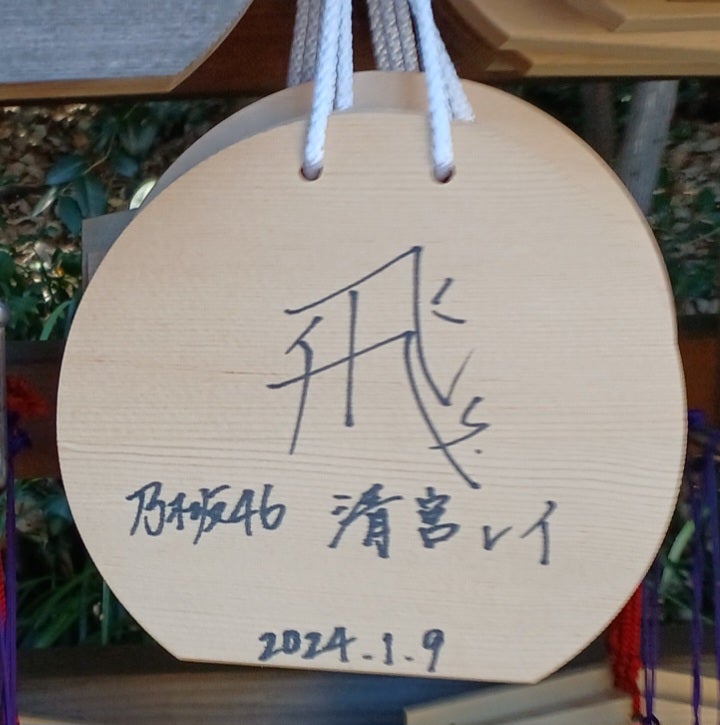 飛
乃木坂46 清宮レイ
2024.1.9